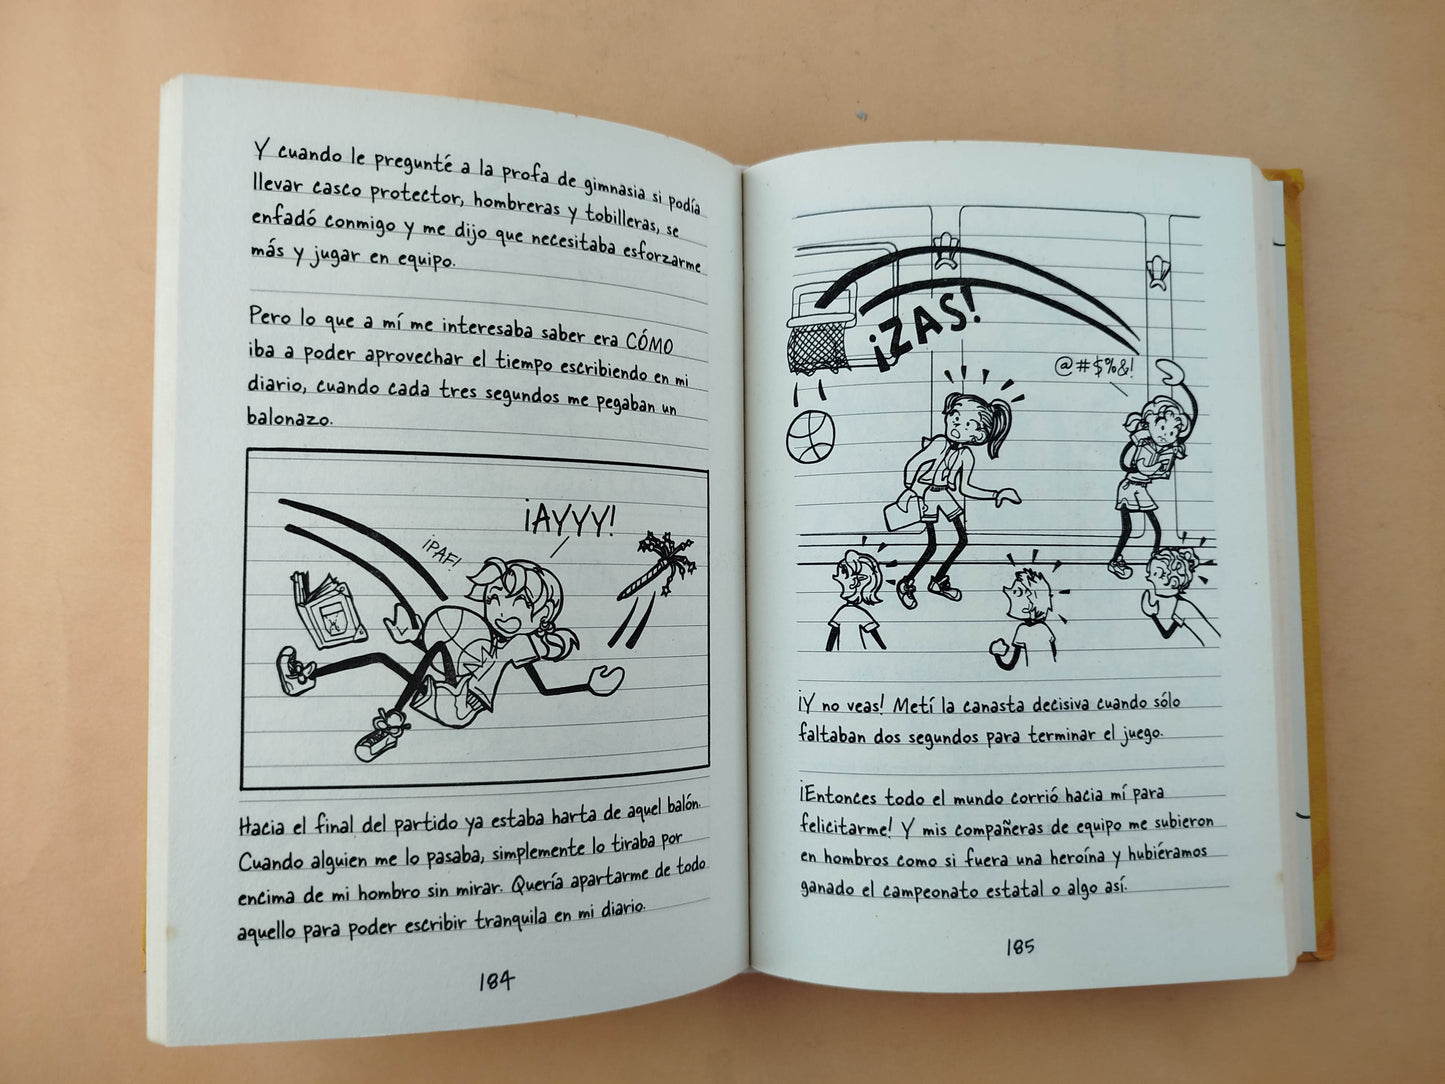 Y cuando le pregunté a la profa de gimnasia si podía
llevar casco protector, hombreras y tobilleras, se
enfadó conmigo y me dijo que necesitaba esforzarme
más y jugar en equipo.
Pero lo que a mí me interesaba saber era CÓMO
iba a poder aprovechar el tiempo escribiendo en mi
diario, cuando cada tres segundos me pegaban un
balonazo.
¡PAF!
¡AYYY!
Hacia el final del partido ya estaba harta de aquel balón.
Cuando alguien me lo pasaba, simplemente lo tiraba por
encima de mi hombro sin mirar. Quería apartarme de todo
aquello para poder escribir tranquila en mi diario.
184
¡ZAS!
@#$%&!
¡Y no veas! Metí la canasta decisiva cuando sólo
faltaban dos segundos para terminar el juego.
¡Entonces todo el mundo corrió hacia mí para
felicitarme! Y mis compañeras de equipo me subieron
en hombros como si fuera una heroína y hubiéramos
ganado el campeonato estatal o algo así.
185